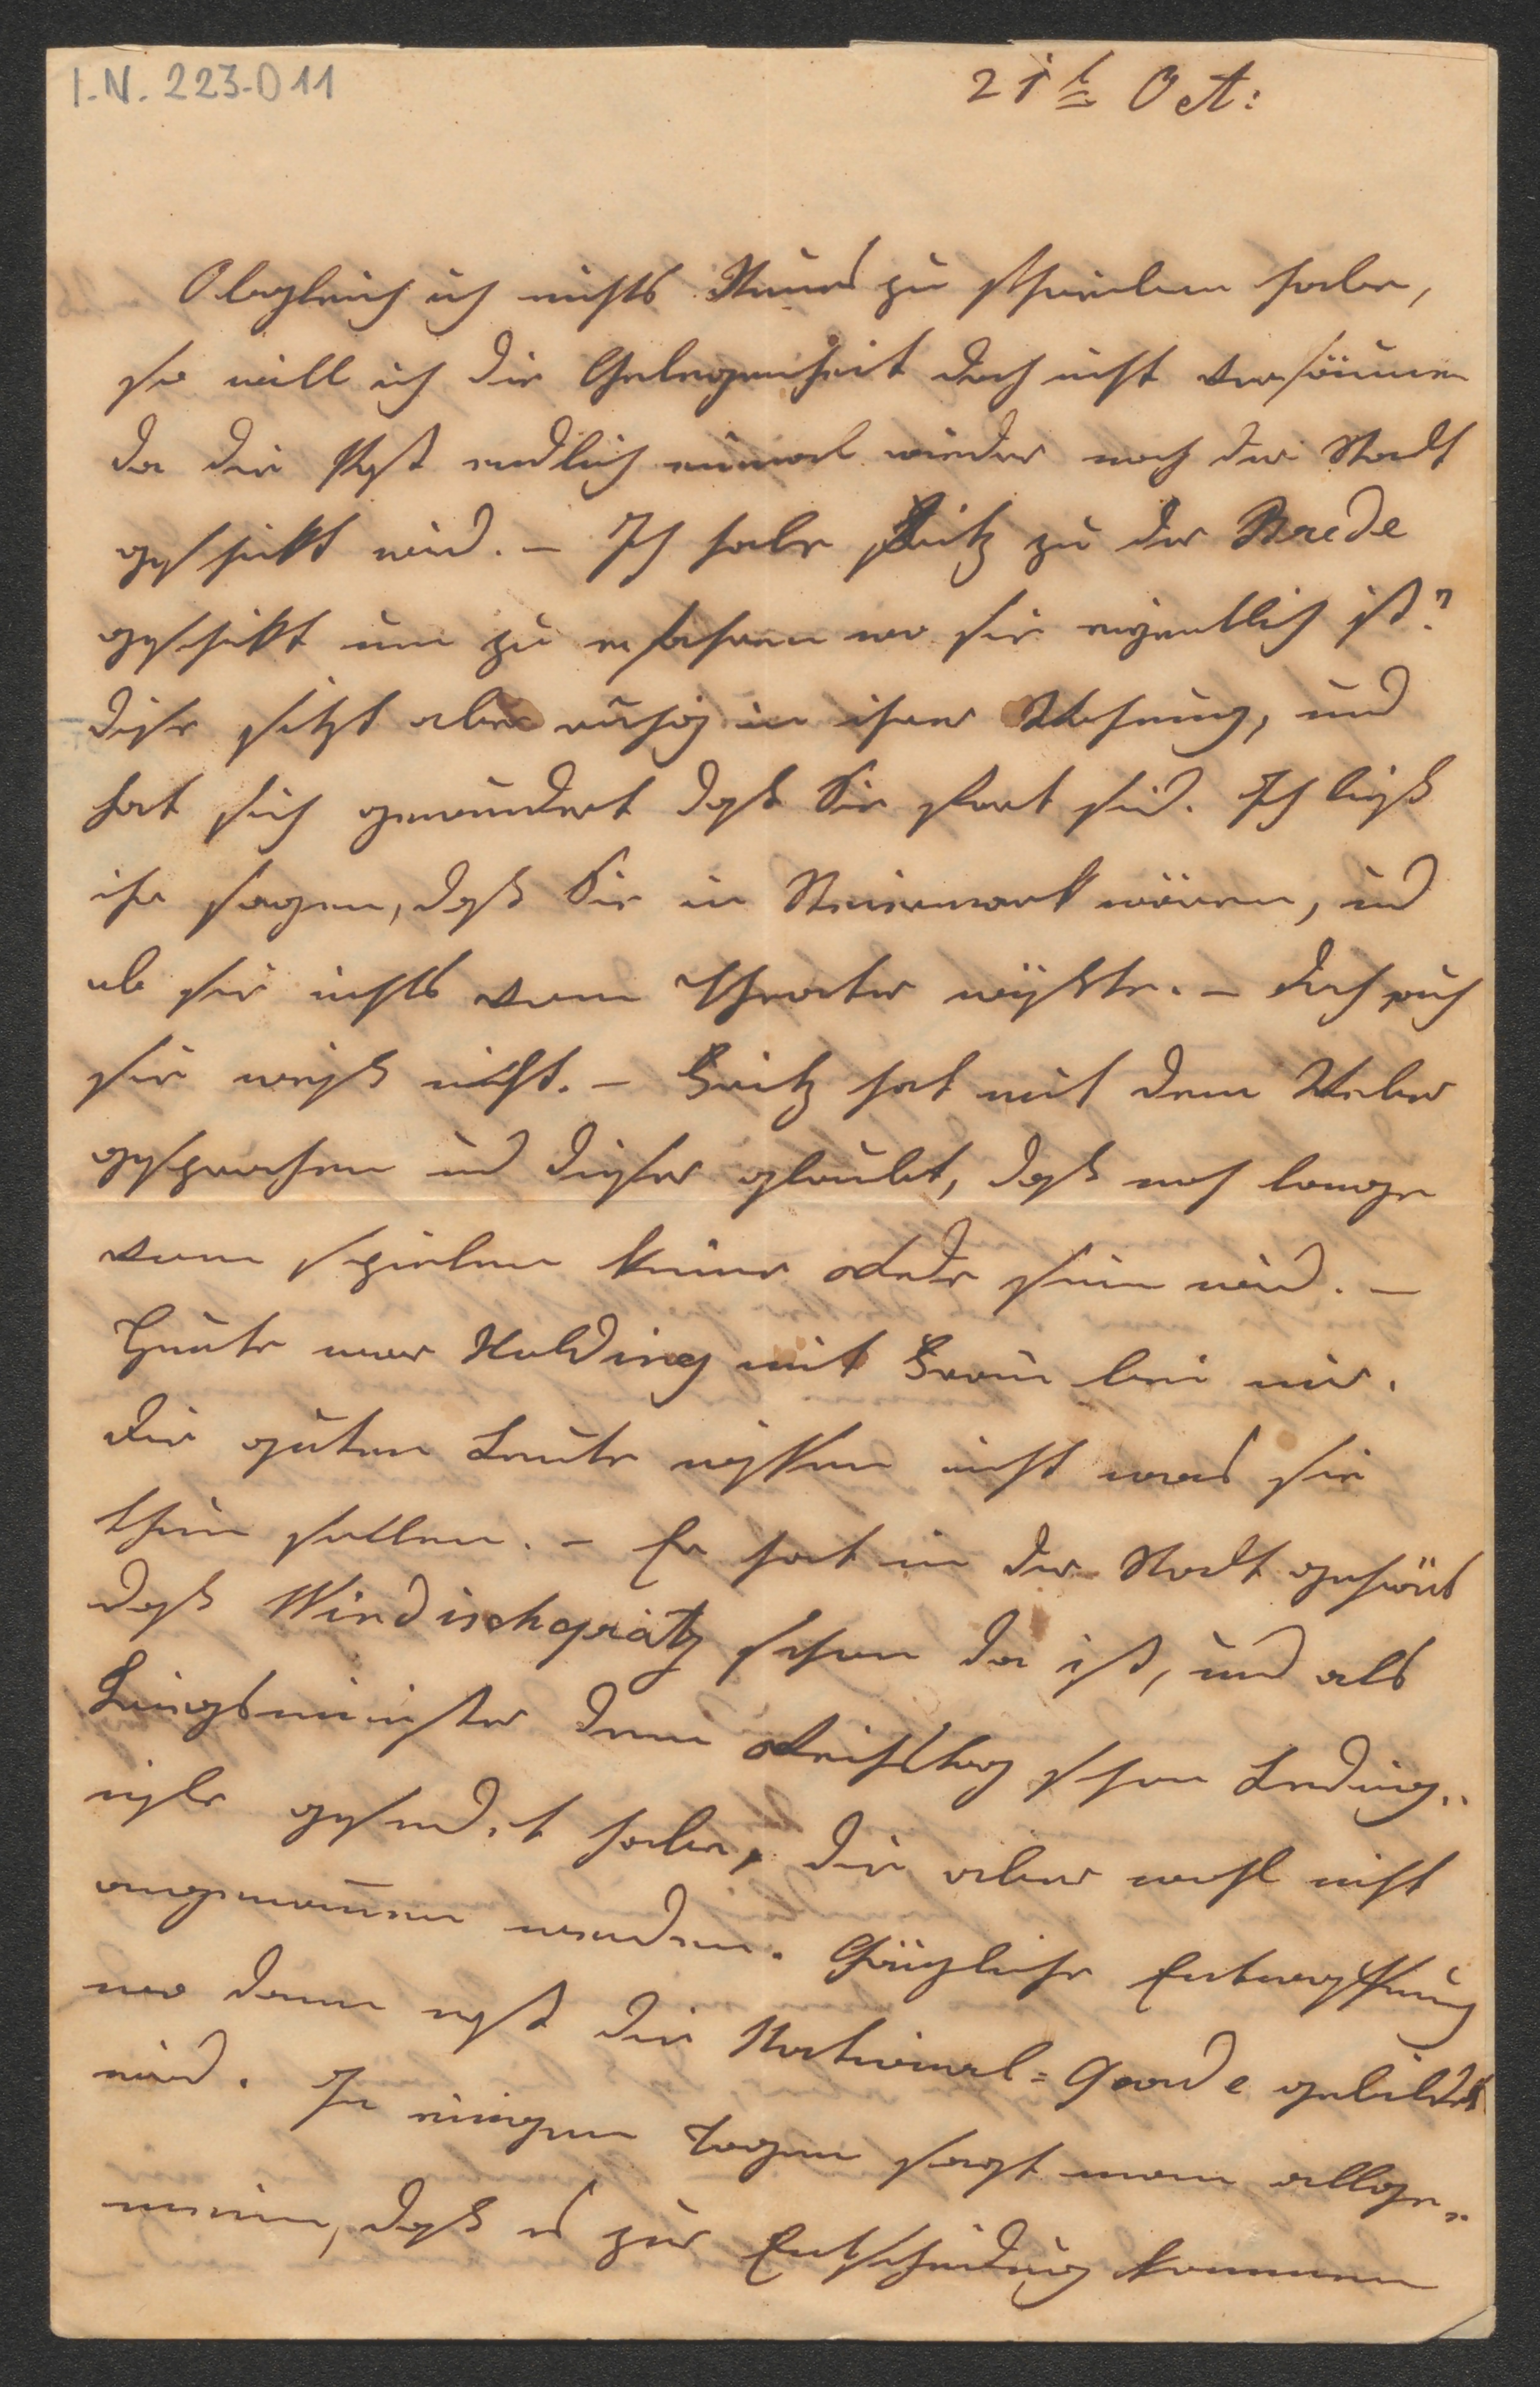 I.N. 223.011
21t Oct:
Obgleich ich nichts Neues zu schreiben habe,
so will ich die Gelegenheit doch nicht versäumen
da die Post endlich einmal wieder nach der Stadt
geschikt wird. – Ich habe Fritz zu der Brede
geschikt um zu erfahren wo sie eigentlich ist?
diese sitzt aber ruhig in ihrer Wohnung, und
hat sich gewundert daß Sie fort sind. Ich ließ
ihr sagen, daß Sie in Steiermark wären, und
ob sie nichts vom Theater wüßte. – doch auch
sie weiß nichts. – Fritz hat mit dem Weber
gesprochen und dieser glaubt, daß noch lange
vom spielen keine Rede sein wird. –
Heute war Holding mit Frau bei mir.
die guten Leute wissen nicht was sie
thun sollen. – Er hat in der Stadt gehört
daß Windischgrätz schon da ist, und als
Kriegsminister dem Reichstag schon Beding„
niße gesendet habe, die aber wohl nicht
angenommen werden. Gänzliche Entwaffnung
wo dann erst die National=Garde gebildet
wird. In einigen Tagen sagt man allge„
mein, daß es zur Entscheidung kommen